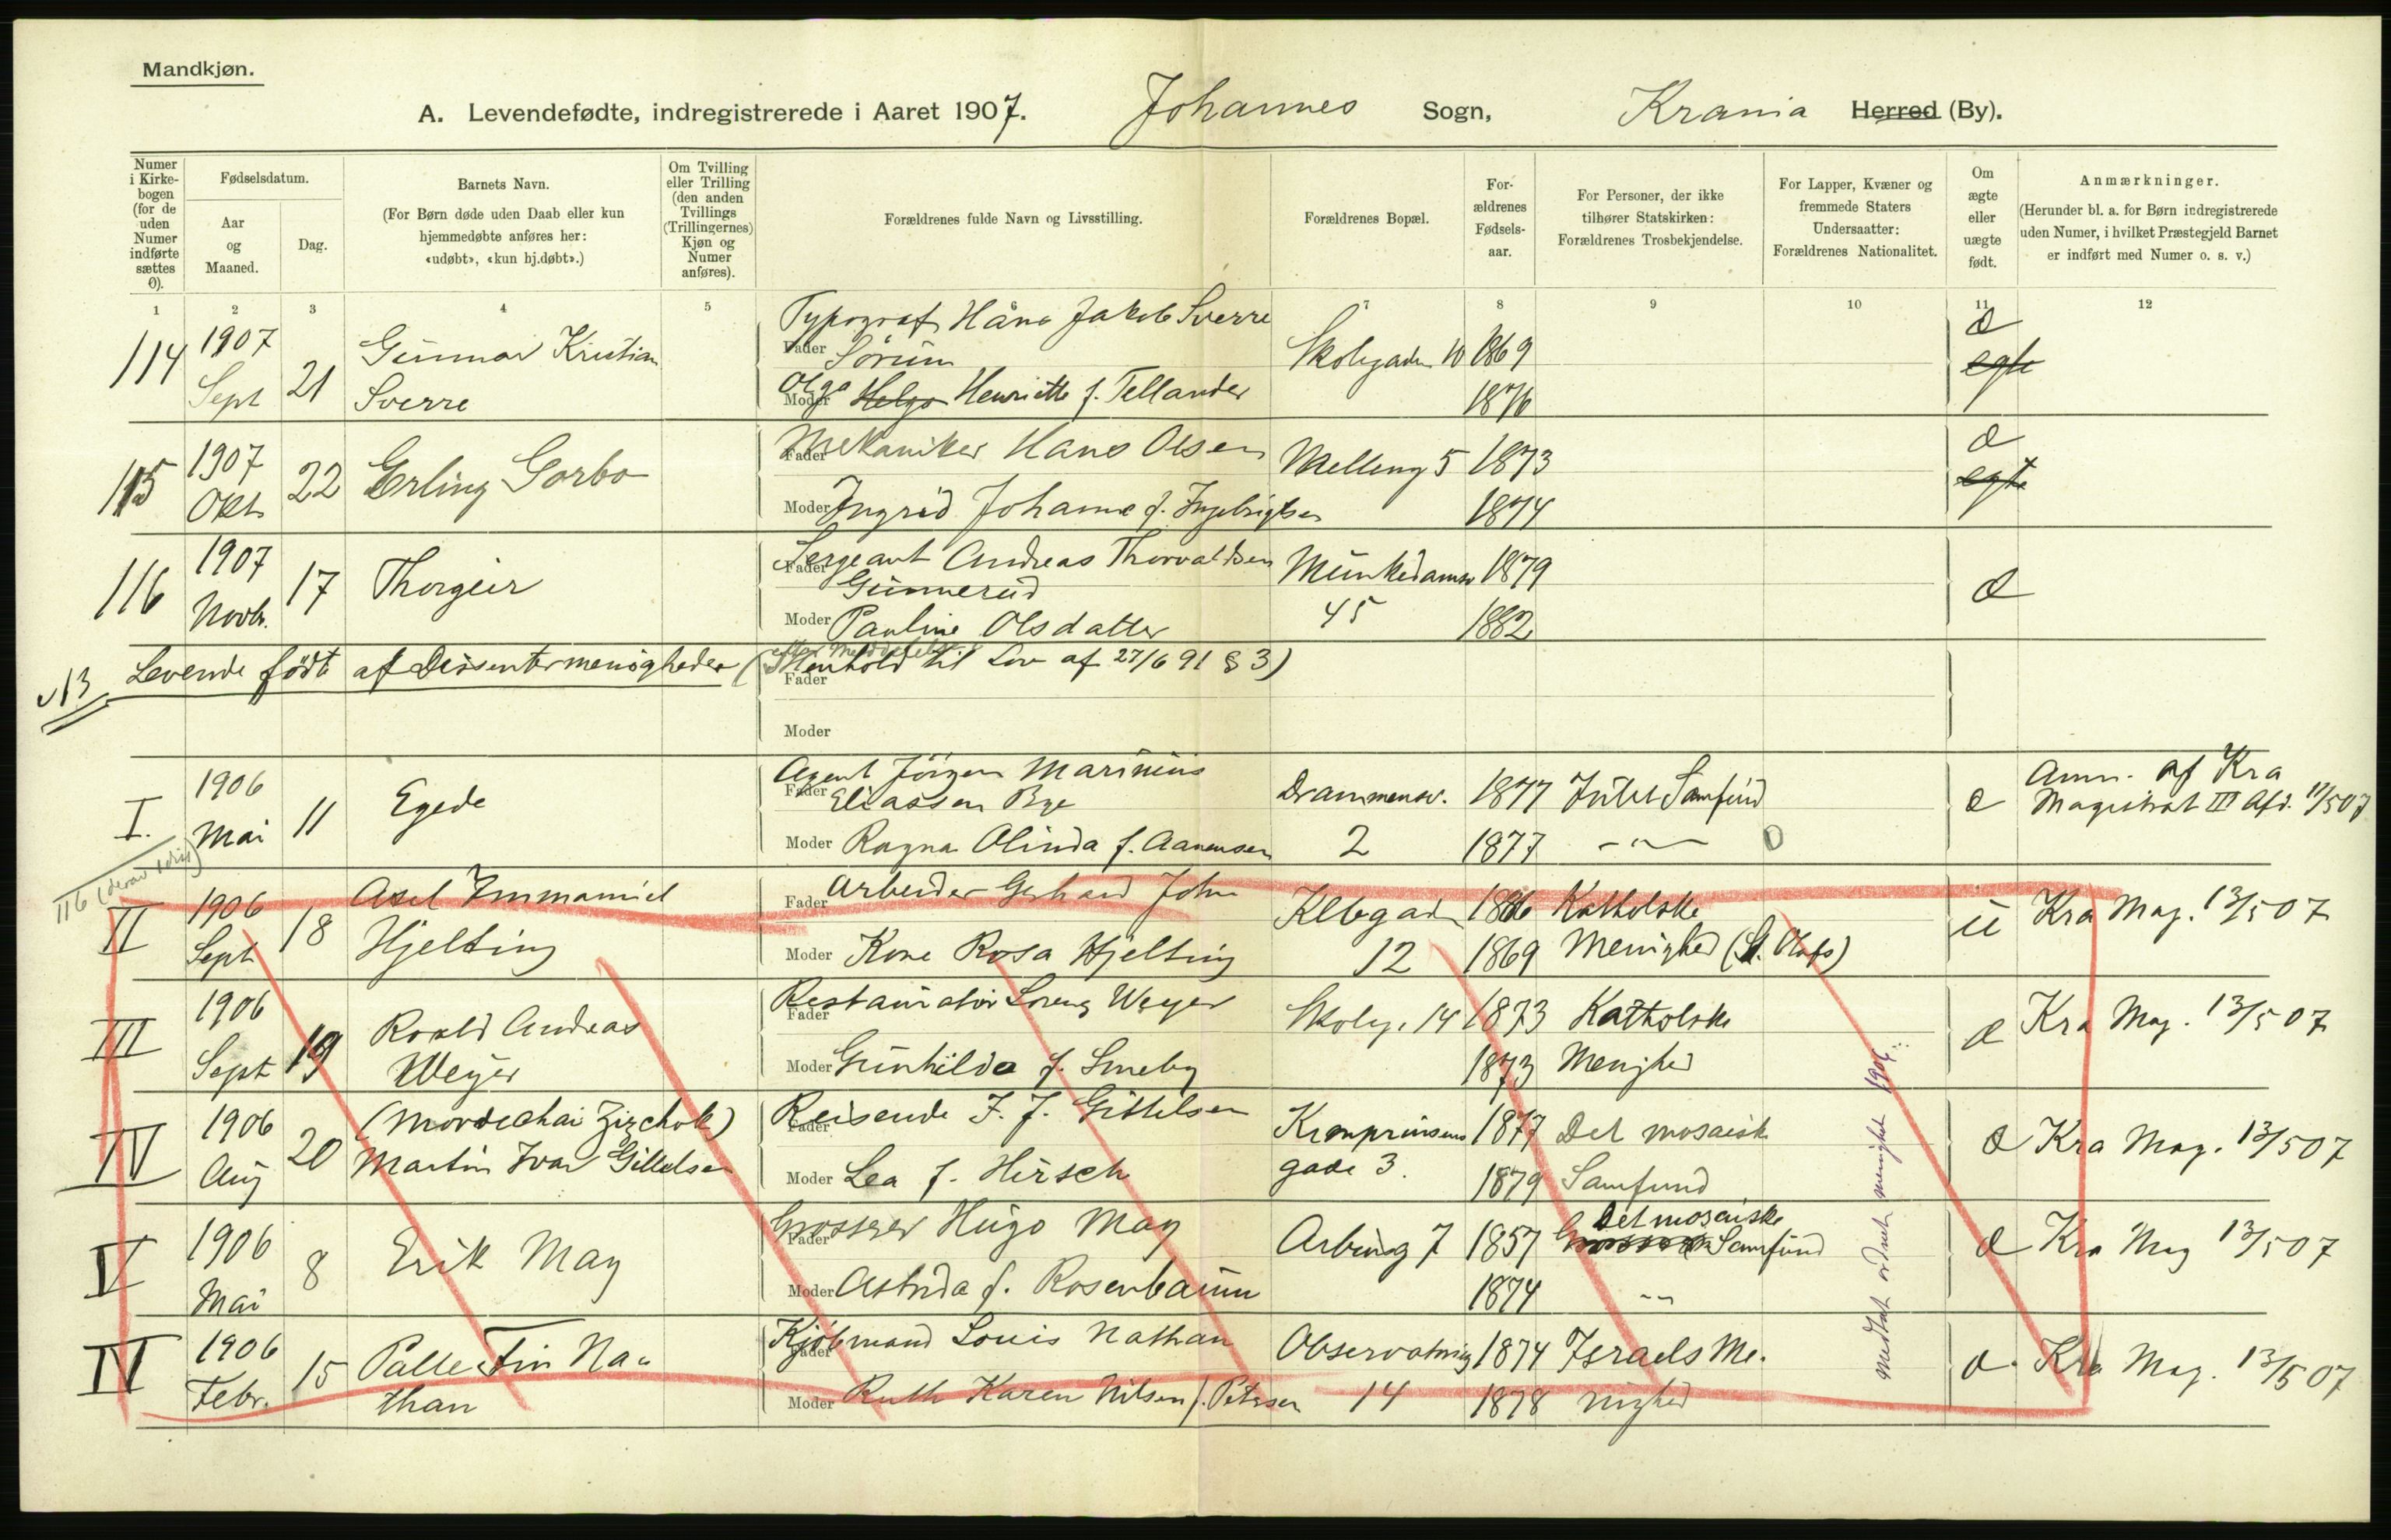 Mandkjøn.
A. Levendefødte, indregistrerede i Aaret 1907. Johannes Sogn, Krania Herred (By).
Numer i Kirkebogen (for de uden Numer indførte sættes 0).
Fødselsdatum.
Aar og Maaned.
Dag.
Barnets Navn.
(For Børn døde uden Daab eller kun hjemmedøbte anføres her: «udøbt», «kun hj.døbt».)
Om Tvilling eller Trilling (den anden Tvillings (Trillingernes) Kjøn og Numer anføres).
Forældrenes fulde Navn og Livsstilling.
Forældrenes Bopæl.
Forældrenes Fødselsaar.
For Personer, der ikke tilhører Statskirken: Forældrenes Trosbekjendelse.
For Lapper, Kvæner og fremmede Staters Undersaatter: Forældrenes Nationalitet.
Om ægte eller uægte født.
Anmærkninger.
(Herunder bl. a. for Børn indregistrerede uden Numer, i hvilket Præstegjeld Barnet er indført med Numer o. s. v.)
1 2 3 4 5 6 7 8 9 10 11 12
114 1907 Sept 21 Gunnar Kristian Sverre
Fader Typograf Hans Jakob Sverre Sørum Skolegaden 10 1869 egte
Moder Olga Helga Henriette f. Tellander 1876
115 1907 Okt 22 Erling Gorbo
Fader Mekaniker Hans Olsen Melleng 5 1873 egte
Moder Ingrid Johanne f. Ingebrigtsen 1874
116 1907 Novb. 17 Thorgeir
Fader Sergeant Andreas Thorvaldsen Gunnerud Munkedamsv 45 1879
Moder Pauline Olsdatter 1882
13 Levende født af Dissentermenigheder (efter Meddelelse i Henhold til Lov af 27/6 91 § 3)
Fader
Moder
I. 1906 Mai 11 Egede
Fader Agent Jörgen Marinius Eliassen Bye Drammensv. 2 1877 Samfund Anm. af Kra Magistrat III Afd. 11/5 07
Moder Ragna Olinda f. Aanensen 1877 — " — 0
116 (derav
II 1906 Sept 18 Axel Immanuel Hjelting
Fader Arbeider Gerhard John 12 Katholske Menighed (St. Olafs) ü Kra Mag. 13/5 07
Moder Kone Rosa Hjelting 1869
III 1906 Sept 19 Roald Andreas Weyer
Fader Restauratør Lorenz Weyer Skoleg. 14 1873 Katholske Menighed Kra Mag. 13/5 07
Moder Gunhilda f. Smeby 1873
IV 1906 Aug 20 (Mordechai Zizchok) Martin Ivar Gittelsen
Fader Reisende I. J. Gittelsen Kronprinsens gade 3. 1877 Det mosaiske Samfund Kra Mag. 13/5 07
Moder Lea f. Hirsch 1879
V 1906 Mai 8 Erik May
Fader Grosserer Hugo May Arbinsg 7 1857 Det mosaiske Samfund Kra Mag 13/5 07
Moder Astrida f. Rosenbaum 1874 - " -
IV 1906 Febr. 15 Palle Finn Nathan
Fader Kjøbmand Louis Nathan Observatorieg 14 1874 Israels Menighed Kra Mag. 13/5 07
Moder Ruth Karen Nilsen f. Petersen 1878
menighet 1906.